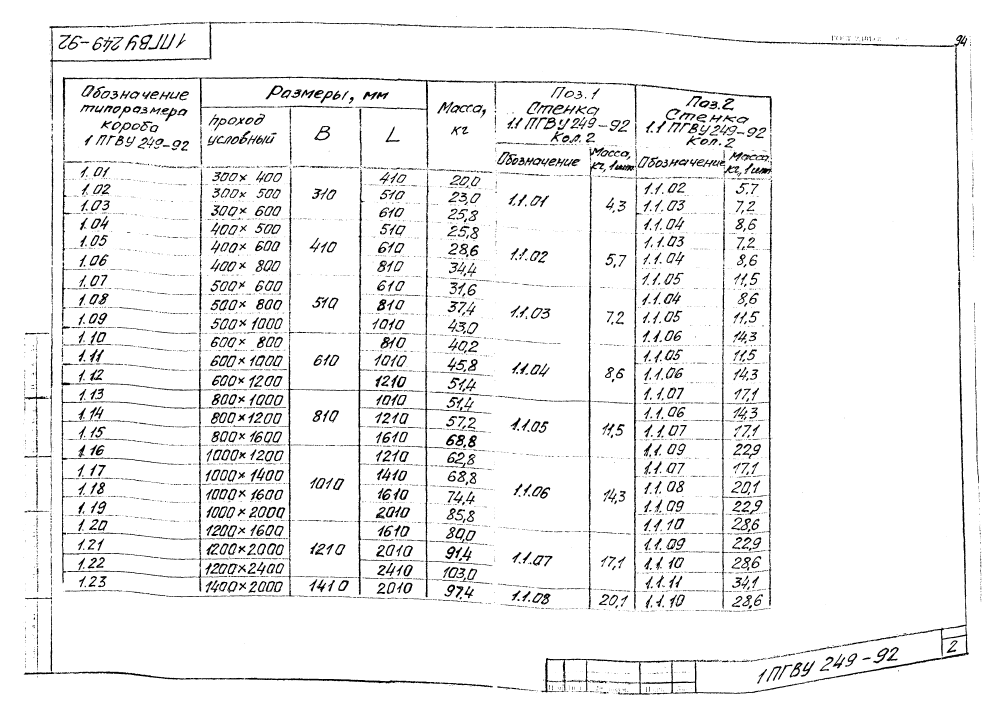 1 ПГВУ 249-92
94
Обозначение типоразмера короба 1 ПГВУ 249-92 | Размеры, мм | Масса, кг | Поз. 1 Стенка 1.1 ПГВУ 249-92 Кол. 2 | Поз. 2 Стенка 1.1 ПГВУ 249-92 Кол. 2
проход условный | B | L | Обозначение | Масса, кг, 1 шт | Обозначение | Масса кг, 1 шт
1.01 300 × 400 310 410 20,0 1.1.01 4,3 1.1.02 5,7
1.02 300 × 500 510 23,0 1.1.03 7,2
1.03 300 × 600 610 25,8 1.1.04 8,6
1.04 400 × 500 410 510 25,8 1.1.02 5,7 1.1.03 7,2
1.05 400 × 600 610 28,6 1.1.04 8,6
1.06 400 × 800 810 34,4 1.1.05 11,5
1.07 500 × 600 510 610 31,6 1.1.03 7,2 1.1.04 8,6
1.08 500 × 800 810 37,4 1.1.05 11,5
1.09 500 × 1000 1010 43,0 1.1.06 14,3
1.10 600 × 800 610 810 40,2 1.1.04 8,6 1.1.05 11,5
1.11 600 × 1000 1010 45,8 1.1.06 14,3
1.12 600 × 1200 1210 51,4 1.1.07 17,1
1.13 800 × 1000 810 1010 51,4 1.1.05 11,5 1.1.06 14,3
1.14 800 × 1200 1210 57,2 1.1.07 17,1
1.15 800 × 1600 1610 68,8 1.1.09 22,9
1.16 1000 × 1200 1010 1210 62,8 1.1.06 14,3 1.1.07 17,1
1.17 1000 × 1400 1410 68,8 1.1.08 20,1
1.18 1000 × 1600 1610 74,4 1.1.09 22,9
1.19 1000 × 2000 2010 85,8 1.1.10 28,6
1.20 1200 × 1600 1210 1610 80,0 1.1.07 17,1 1.1.09 22,9
1.21 1200 × 2000 2010 91,4 1.1.10 28,6
1.22 1200 × 2400 2410 103,0 1.1.11 34,1
1.23 1400 × 2000 1410 2010 97,4 1.1.08 20,1 1.1.10 28,6
1 ПГВУ 249-92
2